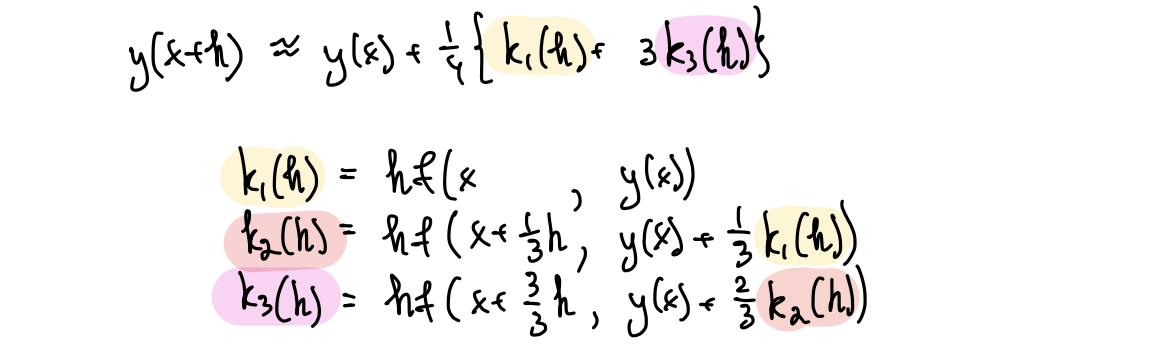 y(x+h) ≈ y(x) + 1/4 { k₁(h) + 3k₃(h) }
k₁(h) = hf(x , y(x))
k₂(h) = hf(x + 1/3 h, y(x) + 1/3 k₁(h))
k₃(h) = hf(x + 3/3 h, y(x) + 2/3 k₂(h))